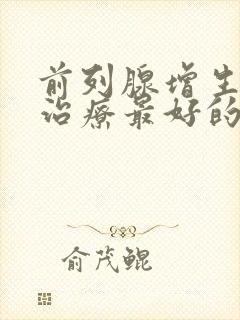 前列腺增生
治疗最好的
俞茂鲲